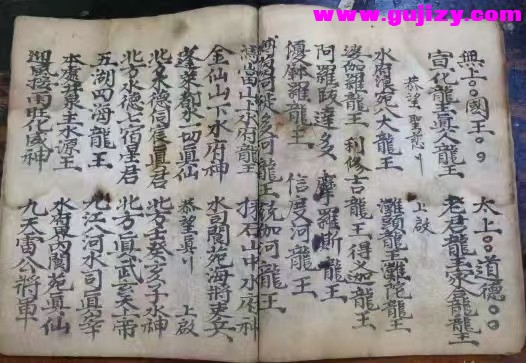 www.gujizy.com
無上○○國王○○ 太上○○道德○○
宣化龍王真人龍王 老君龍王家龍王
恭望聖慈 上啟
水府苑八大龍王 灘頭龍王灘陀龍王
娑伽羅龍王 利修吉龍王得迦龍王
阿羅跋達多 摩羅斯龍王
優鉢羅龍王 信度河龍王
河徙多河龍王殑伽河龍王
山上水府龍王 採石山中水府神
金仙山下水府神 水司閬苑海將吏兵
蓬萊都水一切真仙 恭望真 上啟
北方水德伺宸真君 北方壬癸亥子水神
北方水德七宿星君 北方真武玄天上帝
五湖四海龍王 九江八河水司真宰
本處井泉主水源王 水府界內閬苑真仙
迎風接雨旺化威神 九天雷公將軍